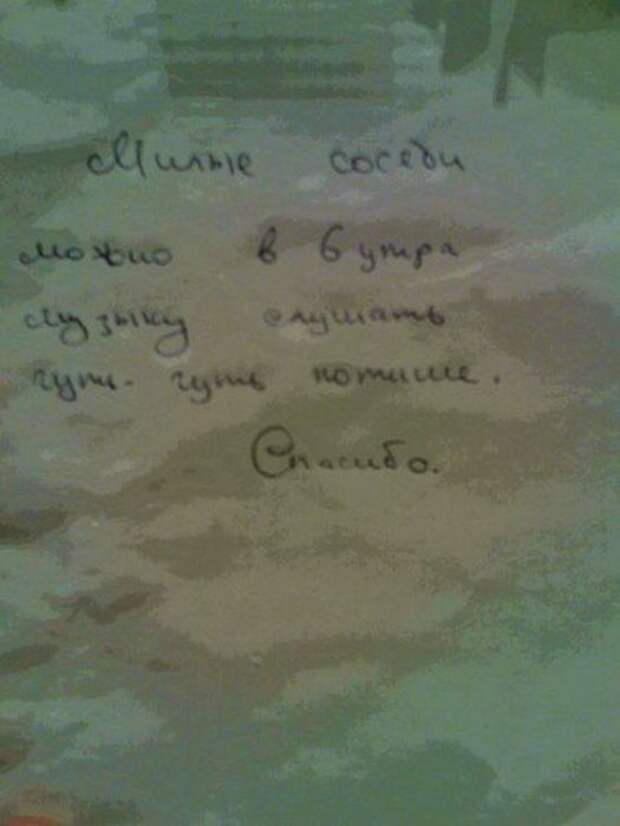 Милые соседи
можно в 6 утра
музыку слушать
чуть-чуть потише.
Спасибо.